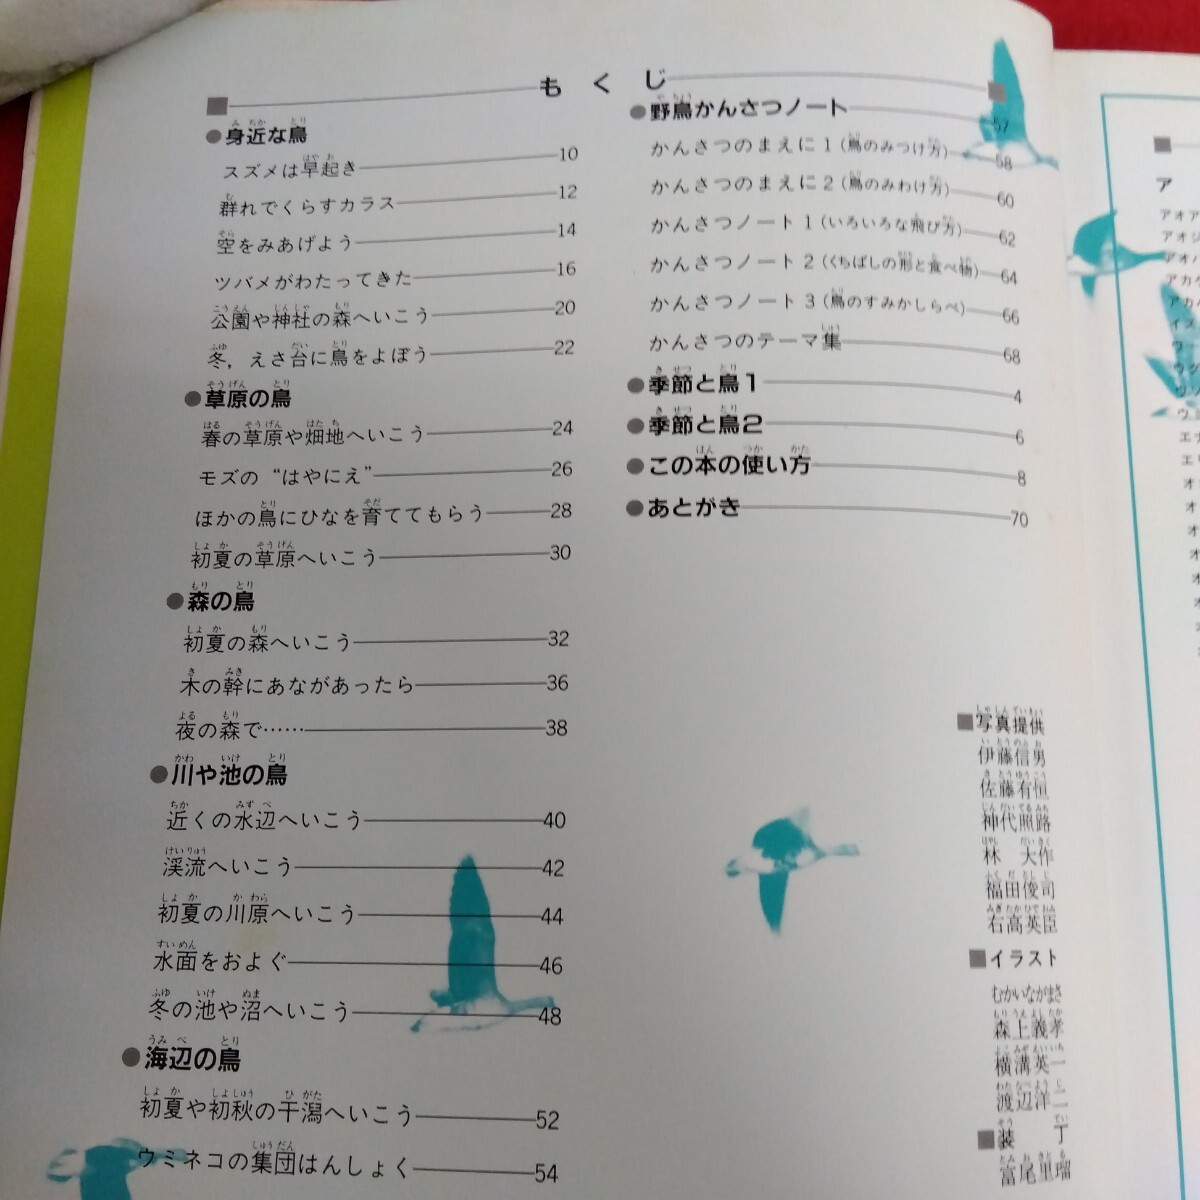 もくじ
●身近な鳥
スズメは早起き 10
群れでくらすカラス 12
空をみあげよう 14
ツバメがわたってきた 16
公園や神社の森へいこう 20
冬，えさ台に鳥をよぼう 22
●草原の鳥
春の草原や畑地へいこう 24
モズの“はやにえ” 26
ほかの鳥にひなを育ててもらう 28
初夏の草原へいこう 30
●森の鳥
初夏の森へいこう 32
木の幹にあながあったら 36
夜の森で…… 38
●川や池の鳥
近くの水辺へいこう 40
渓流へいこう 42
初夏の川原へいこう 44
水面をおよぐ 46
冬の池や沼へいこう 48
●海辺の鳥
初夏や初秋の干潟へいこう 52
ウミネコの集団はんしょく 54
●野鳥かんさつノート 57
かんさつのまえに1（鳥のみつけ方） 58
かんさつのまえに2（鳥のみわけ方） 60
かんさつノート1（いろいろな飛び方） 62
かんさつノート2（くちばしの形と食べ物） 64
かんさつノート3（鳥のすみかしらべ） 66
かんさつのテーマ集 68
●季節と鳥1 4
●季節と鳥2 6
●この本の使い方 8
●あとがき 70
■写真提供
伊藤信男
佐藤有恒
神代照路
林 大作
福田俊司
右高英臣
■イラスト
むかいながまさ
森上義孝
横溝英一
渡辺洋二
■装 丁
富尾里瑠
ア
アオア
アオジ
アオバ
アカゲ